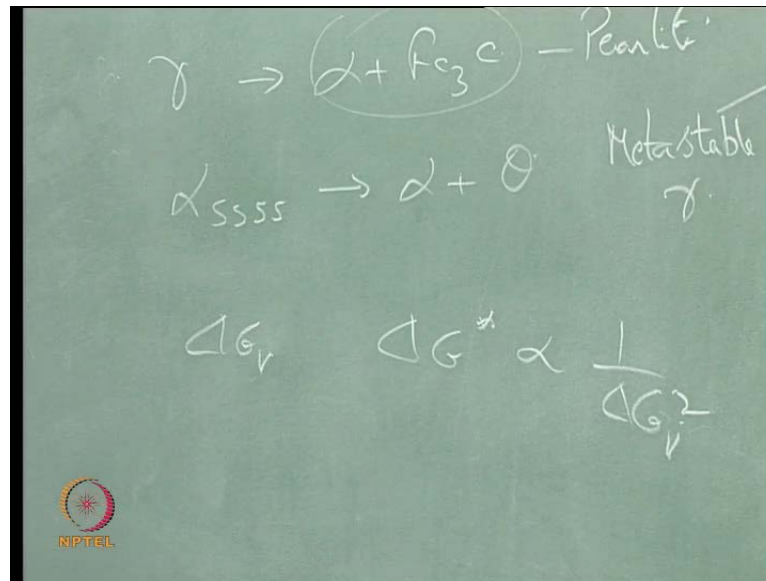 γ → α + Fe₃C – Pearlite
α_SSSS → α + θ
Metastable
γ
ΔG_v    ΔG* ∝ 1/ΔG_v²
NPTEL